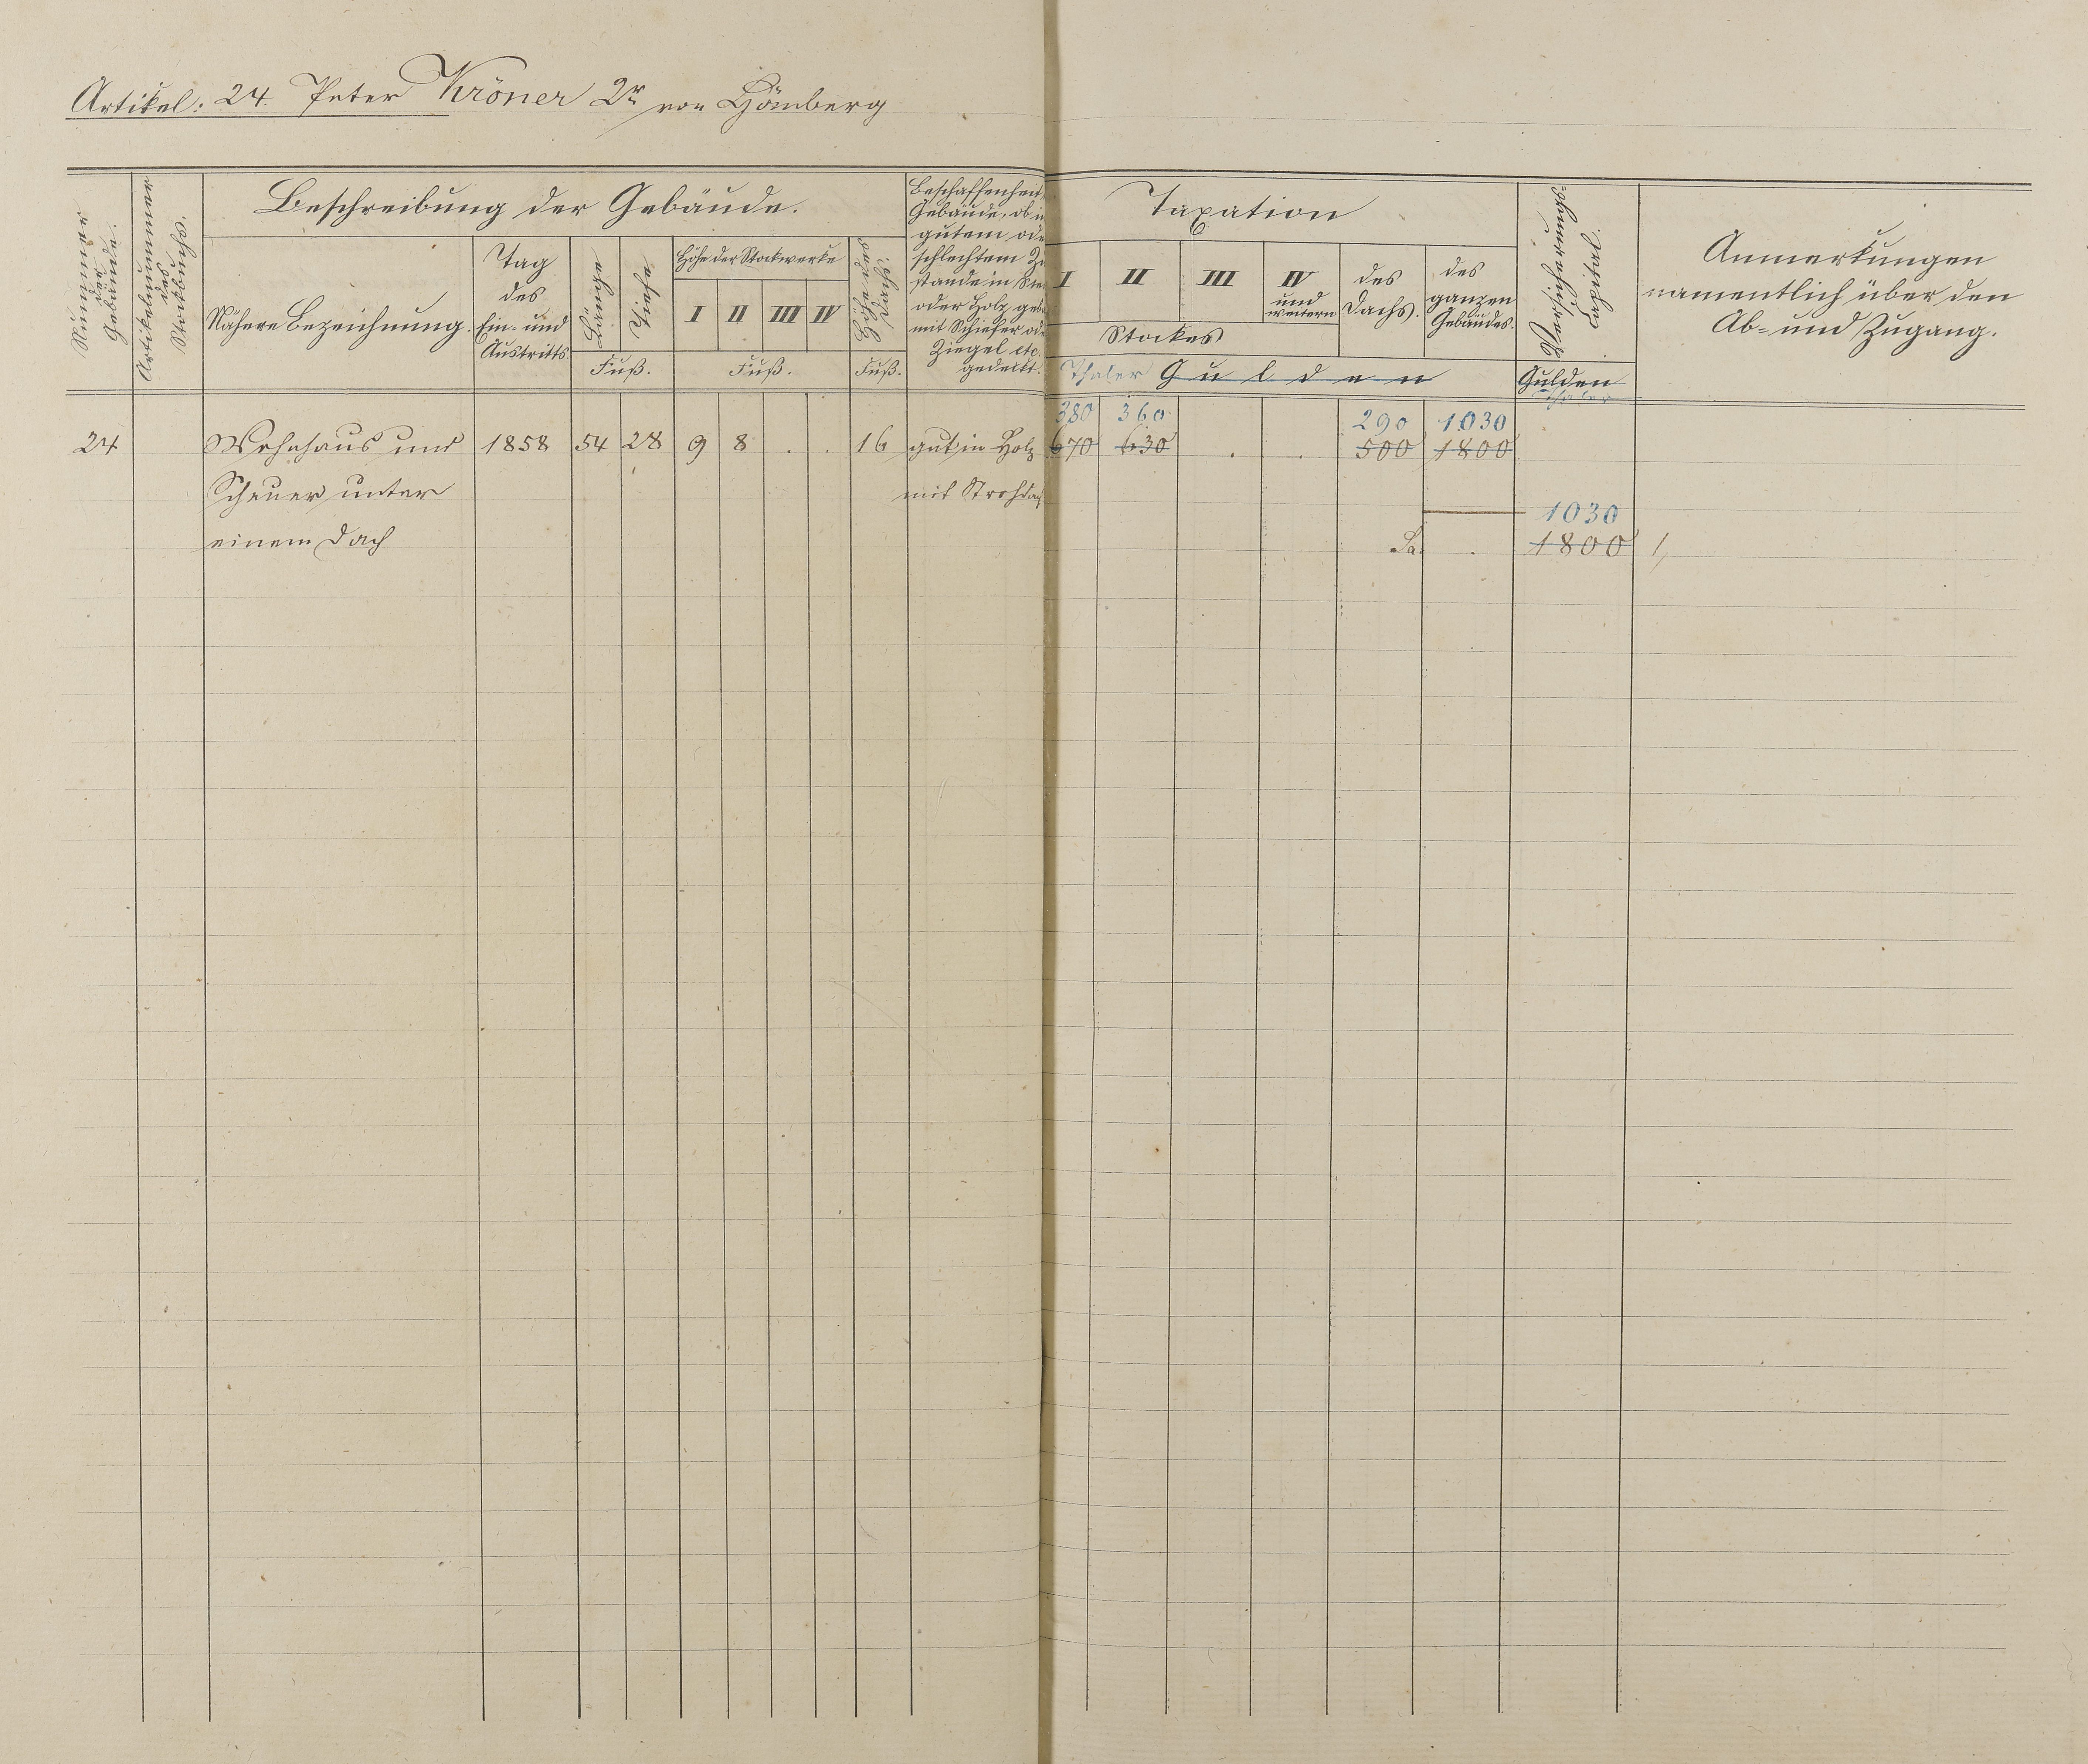 Artikel: 24. Peter Kröner 2r von Hömberg
Nummer der Gebäude.
Artikelnummer des Stockbuchs.
Beschreibung der Gebäude.
Nähere Bezeichnung.
Tag des Ein- und Austritts
Länge
Tiefe
Fuß.
Höhe der Stockwerke
I II III IV
Fuß.
Höhe des Dachs.
Fuß.
Beschaffenheit
Gebäude, ob in
gutem ode
schlechtem Zu
stande in Stei
oder Holz geb
mit Schiefer ode
Ziegel etc.
gedeckt.
Taxation
I II III IV und weitern
Stockes
des Dachs.
des ganzen Gebäudes.
Thaler Gulden
Versicherungs Capital.
Gulden
Thaler
Anmerkungen
namentlich über den
Ab- und Zugang.
380 360 290 1030
24 Wohnhaus und 1858 54 28 9 8 . . 16 gut in Holz 670 630 . . 500 1800
Scheuer unter mit Strohdach
1030
einem Dach Sa. . 1800